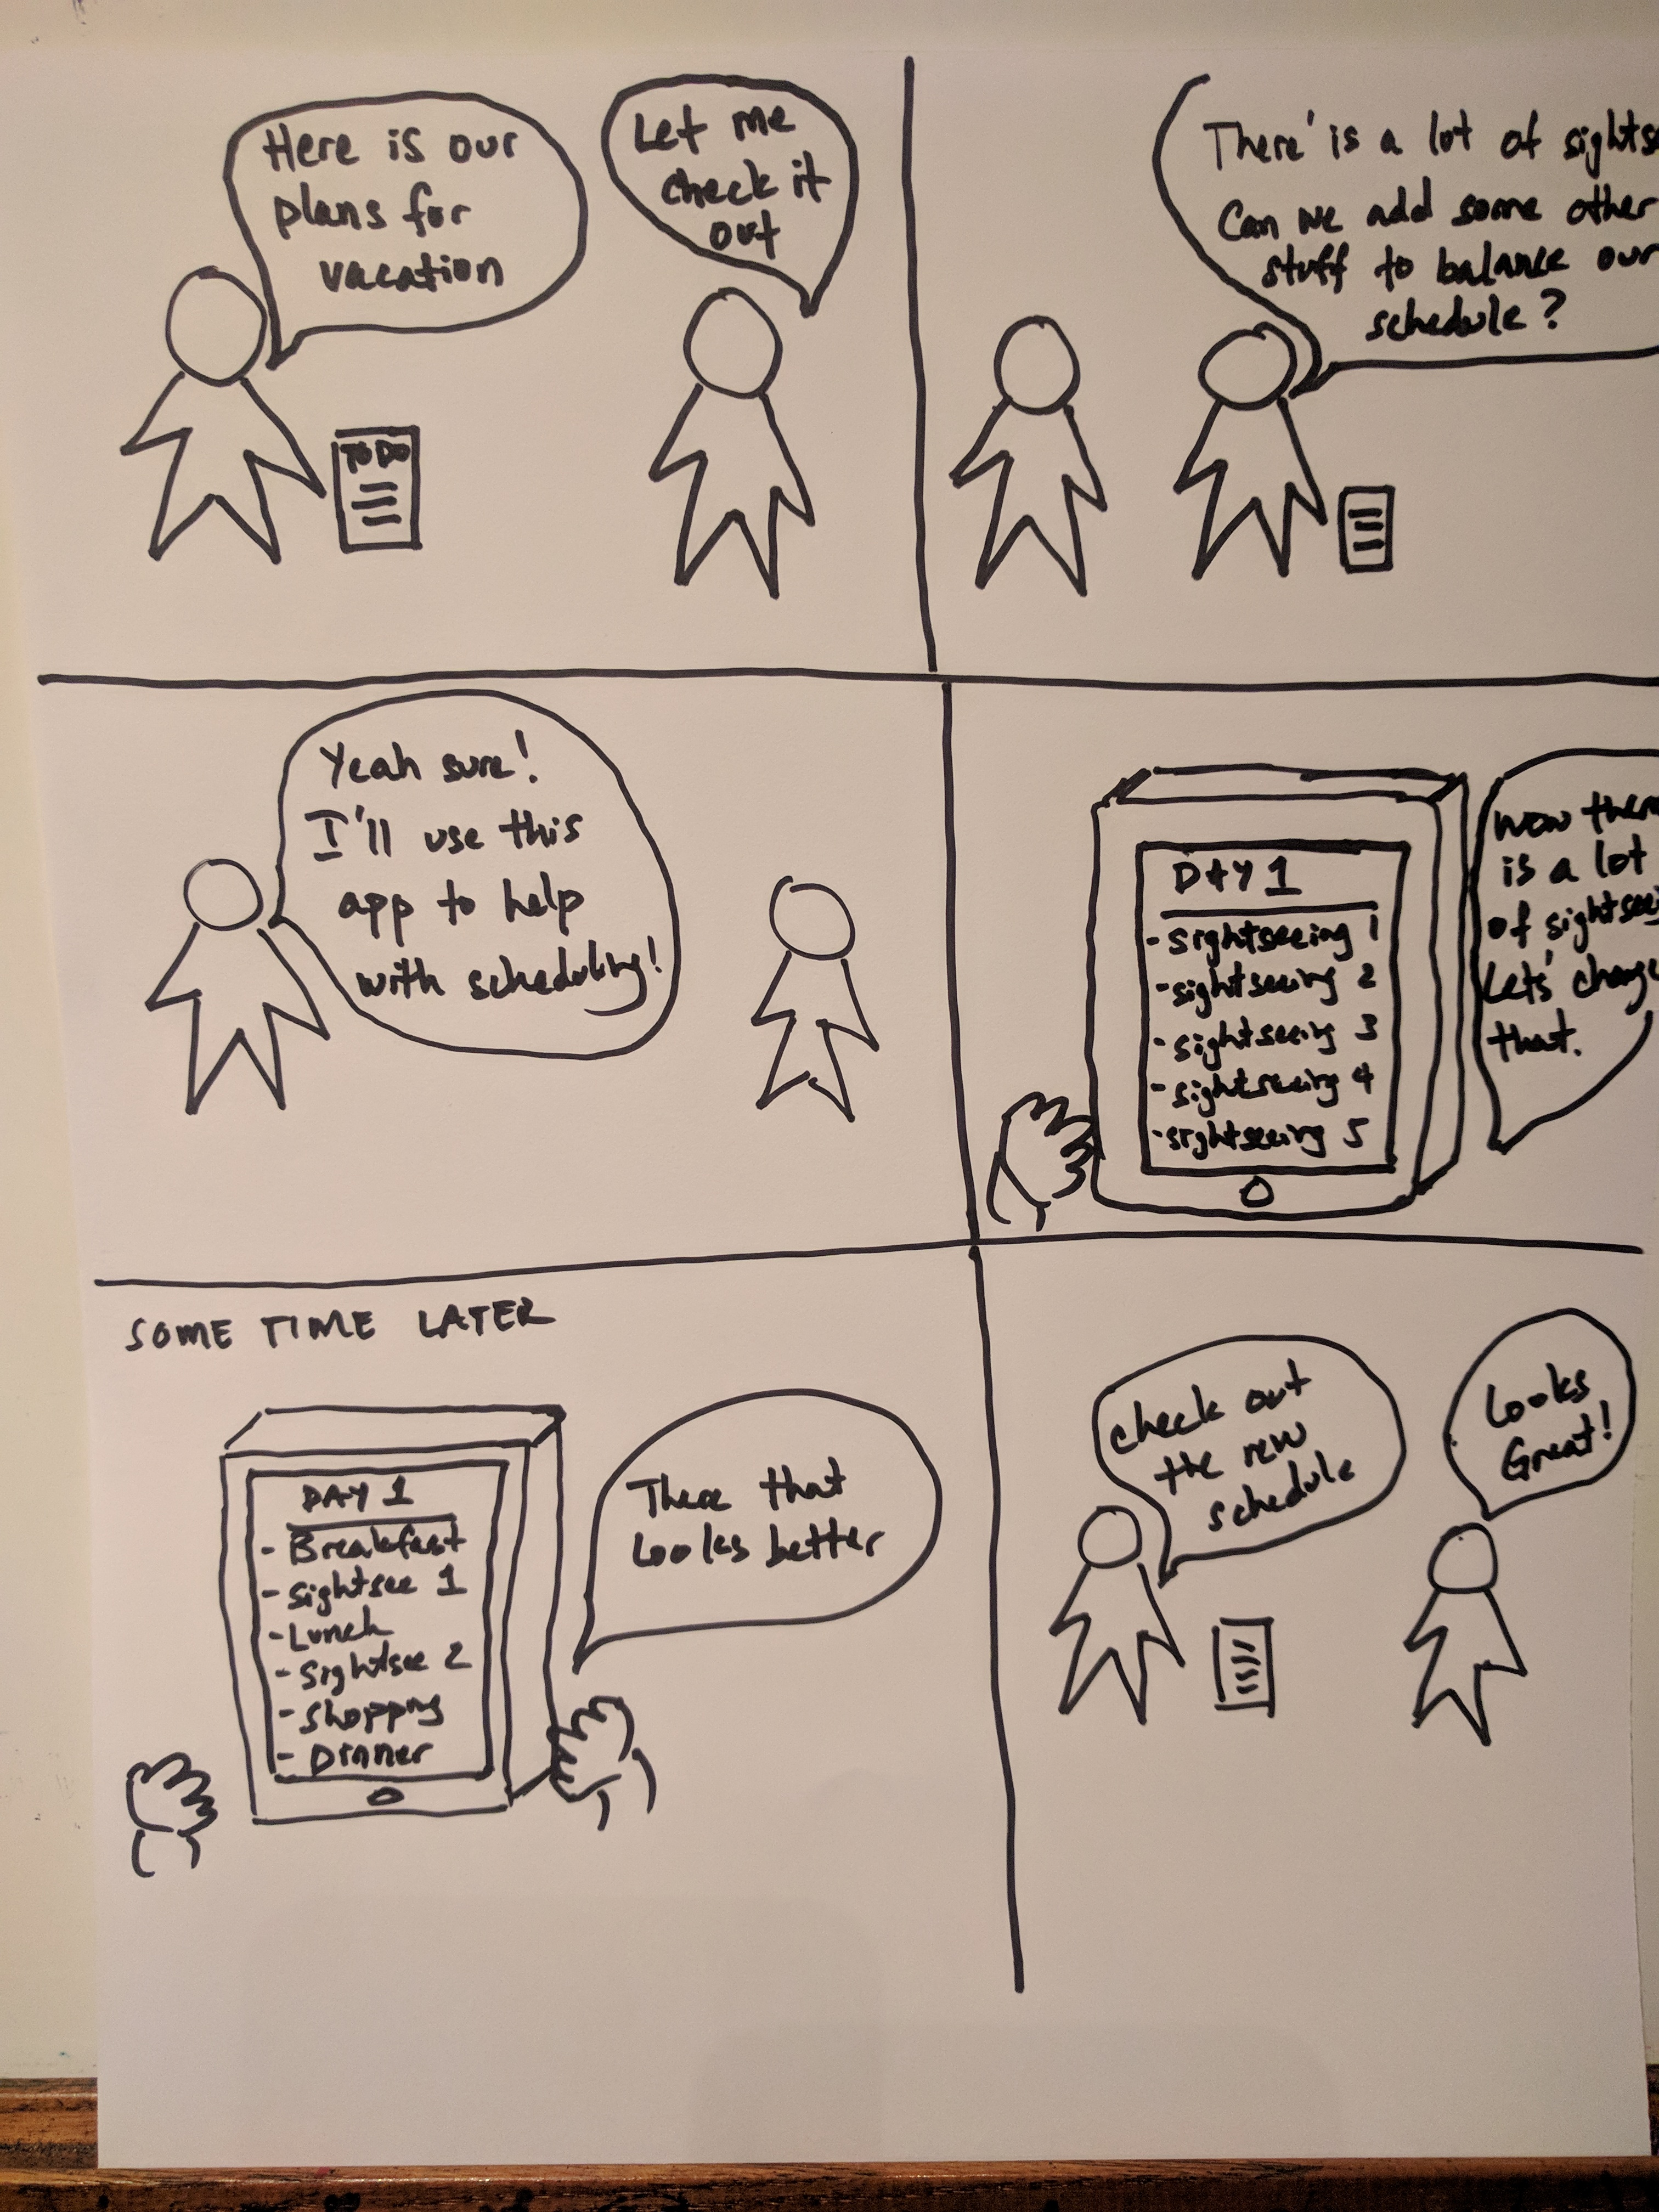 Here is our
plans for
vacation
Let me
check it
out
TO DO
There' is a lot of
Can we add some other
stuff to balance our
schedule?
Yeah sure!
I'll use this
app to help
with scheduling!
DAY 1
- sightseeing 1
- sightseeing 2
- sightseeing 3
- sightseeing 4
- sightseeing 5
wow
is a lot
of
Lets'
that.
SOME TIME LATER
DAY 1
- Breakfast
- sightsee 1
- Lunch
- Sightsee 2
- shopping
- Dinner
There that
looks better
check out
the new
schedule
Looks
Great!